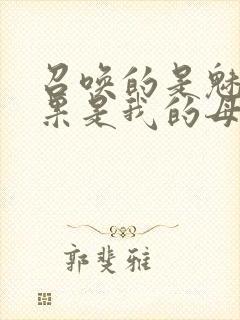 召唤的是魅
果是我的母
郭斐雅